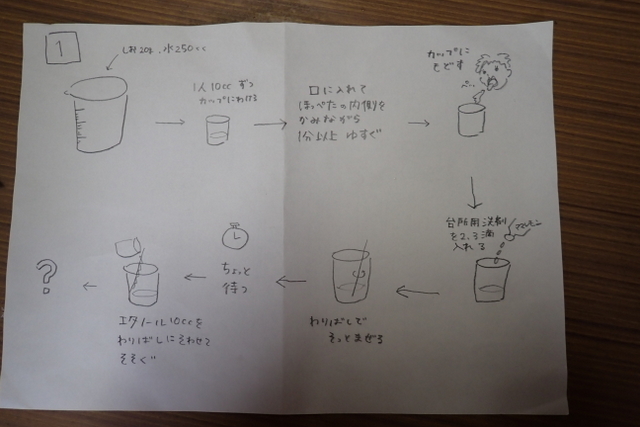 1
しお20g、水250cc
1人10ccずつ
カップにわける
口に入れて
ほっぺたの内側を
かみながら
1分以上ゆすぐ
カップに
もどす
ペッ
台所用洗剤
を2、3滴
入れる
ママレモン
わりばしで
そっとまぜる
ちょっと
待つ
エタノール10ccを
わりばしにそわせて
そそぐ
?